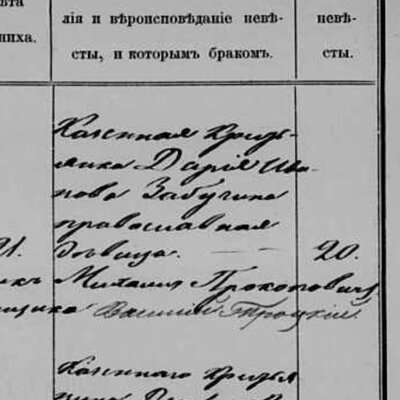 ѣта
лія и вѣроисповѣданіе невѣ-
невѣ-
ниха.
сты, и которымъ бракомъ.
сты.
Казенная кресть-
янка Дарія Ива-
нова Забугина
православная
21.
дѣвица.
20.
Михаилъ Прокоповичъ
Василій Троцкій
Казеннаго кресть